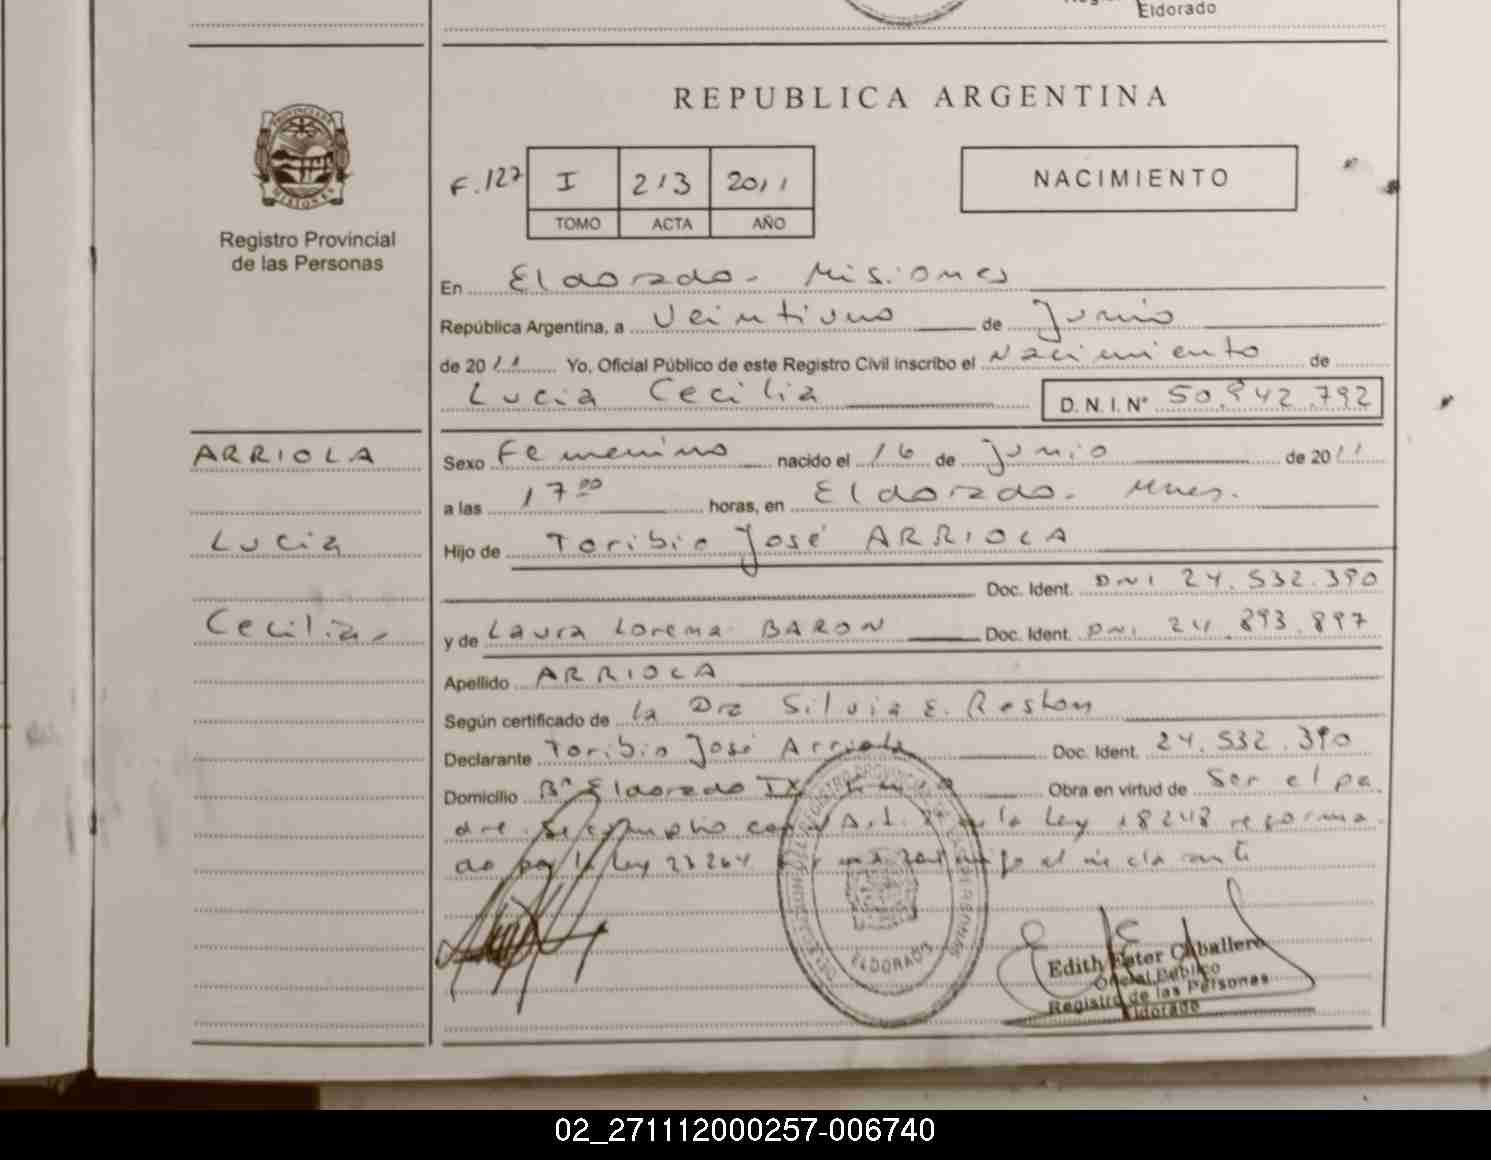 Eldorado
REPUBLICA ARGENTINA
F. 127 I 213 2011
TOMO ACTA AÑO
NACIMIENTO
Registro Provincial
de las Personas
En Eldorado - Misiones
República Argentina, a Veintiuno de Junio
de 2011 Yo, Oficial Público de este Registro Civil inscribo el Nacimiento de
Lucia Cecilia D.N.I. Nº 50.942.792
ARRIOLA
Lucia
Cecilia -
Sexo Femenino nacido el 16 de Junio de 2011
a las 17 00 horas, en Eldorado - Mnes.
Hijo de Toribio José ARRIOLA
Doc. Ident. DNI 24.532.390
y de Laura Lorena BARON Doc. Ident. DNI 24.893.897
Apellido ARRIOLA
Según certificado de la Dra Silvia E.
Declarante Toribio José Arriola Doc. Ident. 24.532.390
Domicilio Bº Eldorado IX Obra en virtud de ser el pa
dre. Se cumplio con el Art. de la Ley 18248 reforma
do por la Ley 23264
ELDORADO
Edith Ester Caballero
Oficial Público
Registro de las Personas
Eldorado
02_271112000257-006740